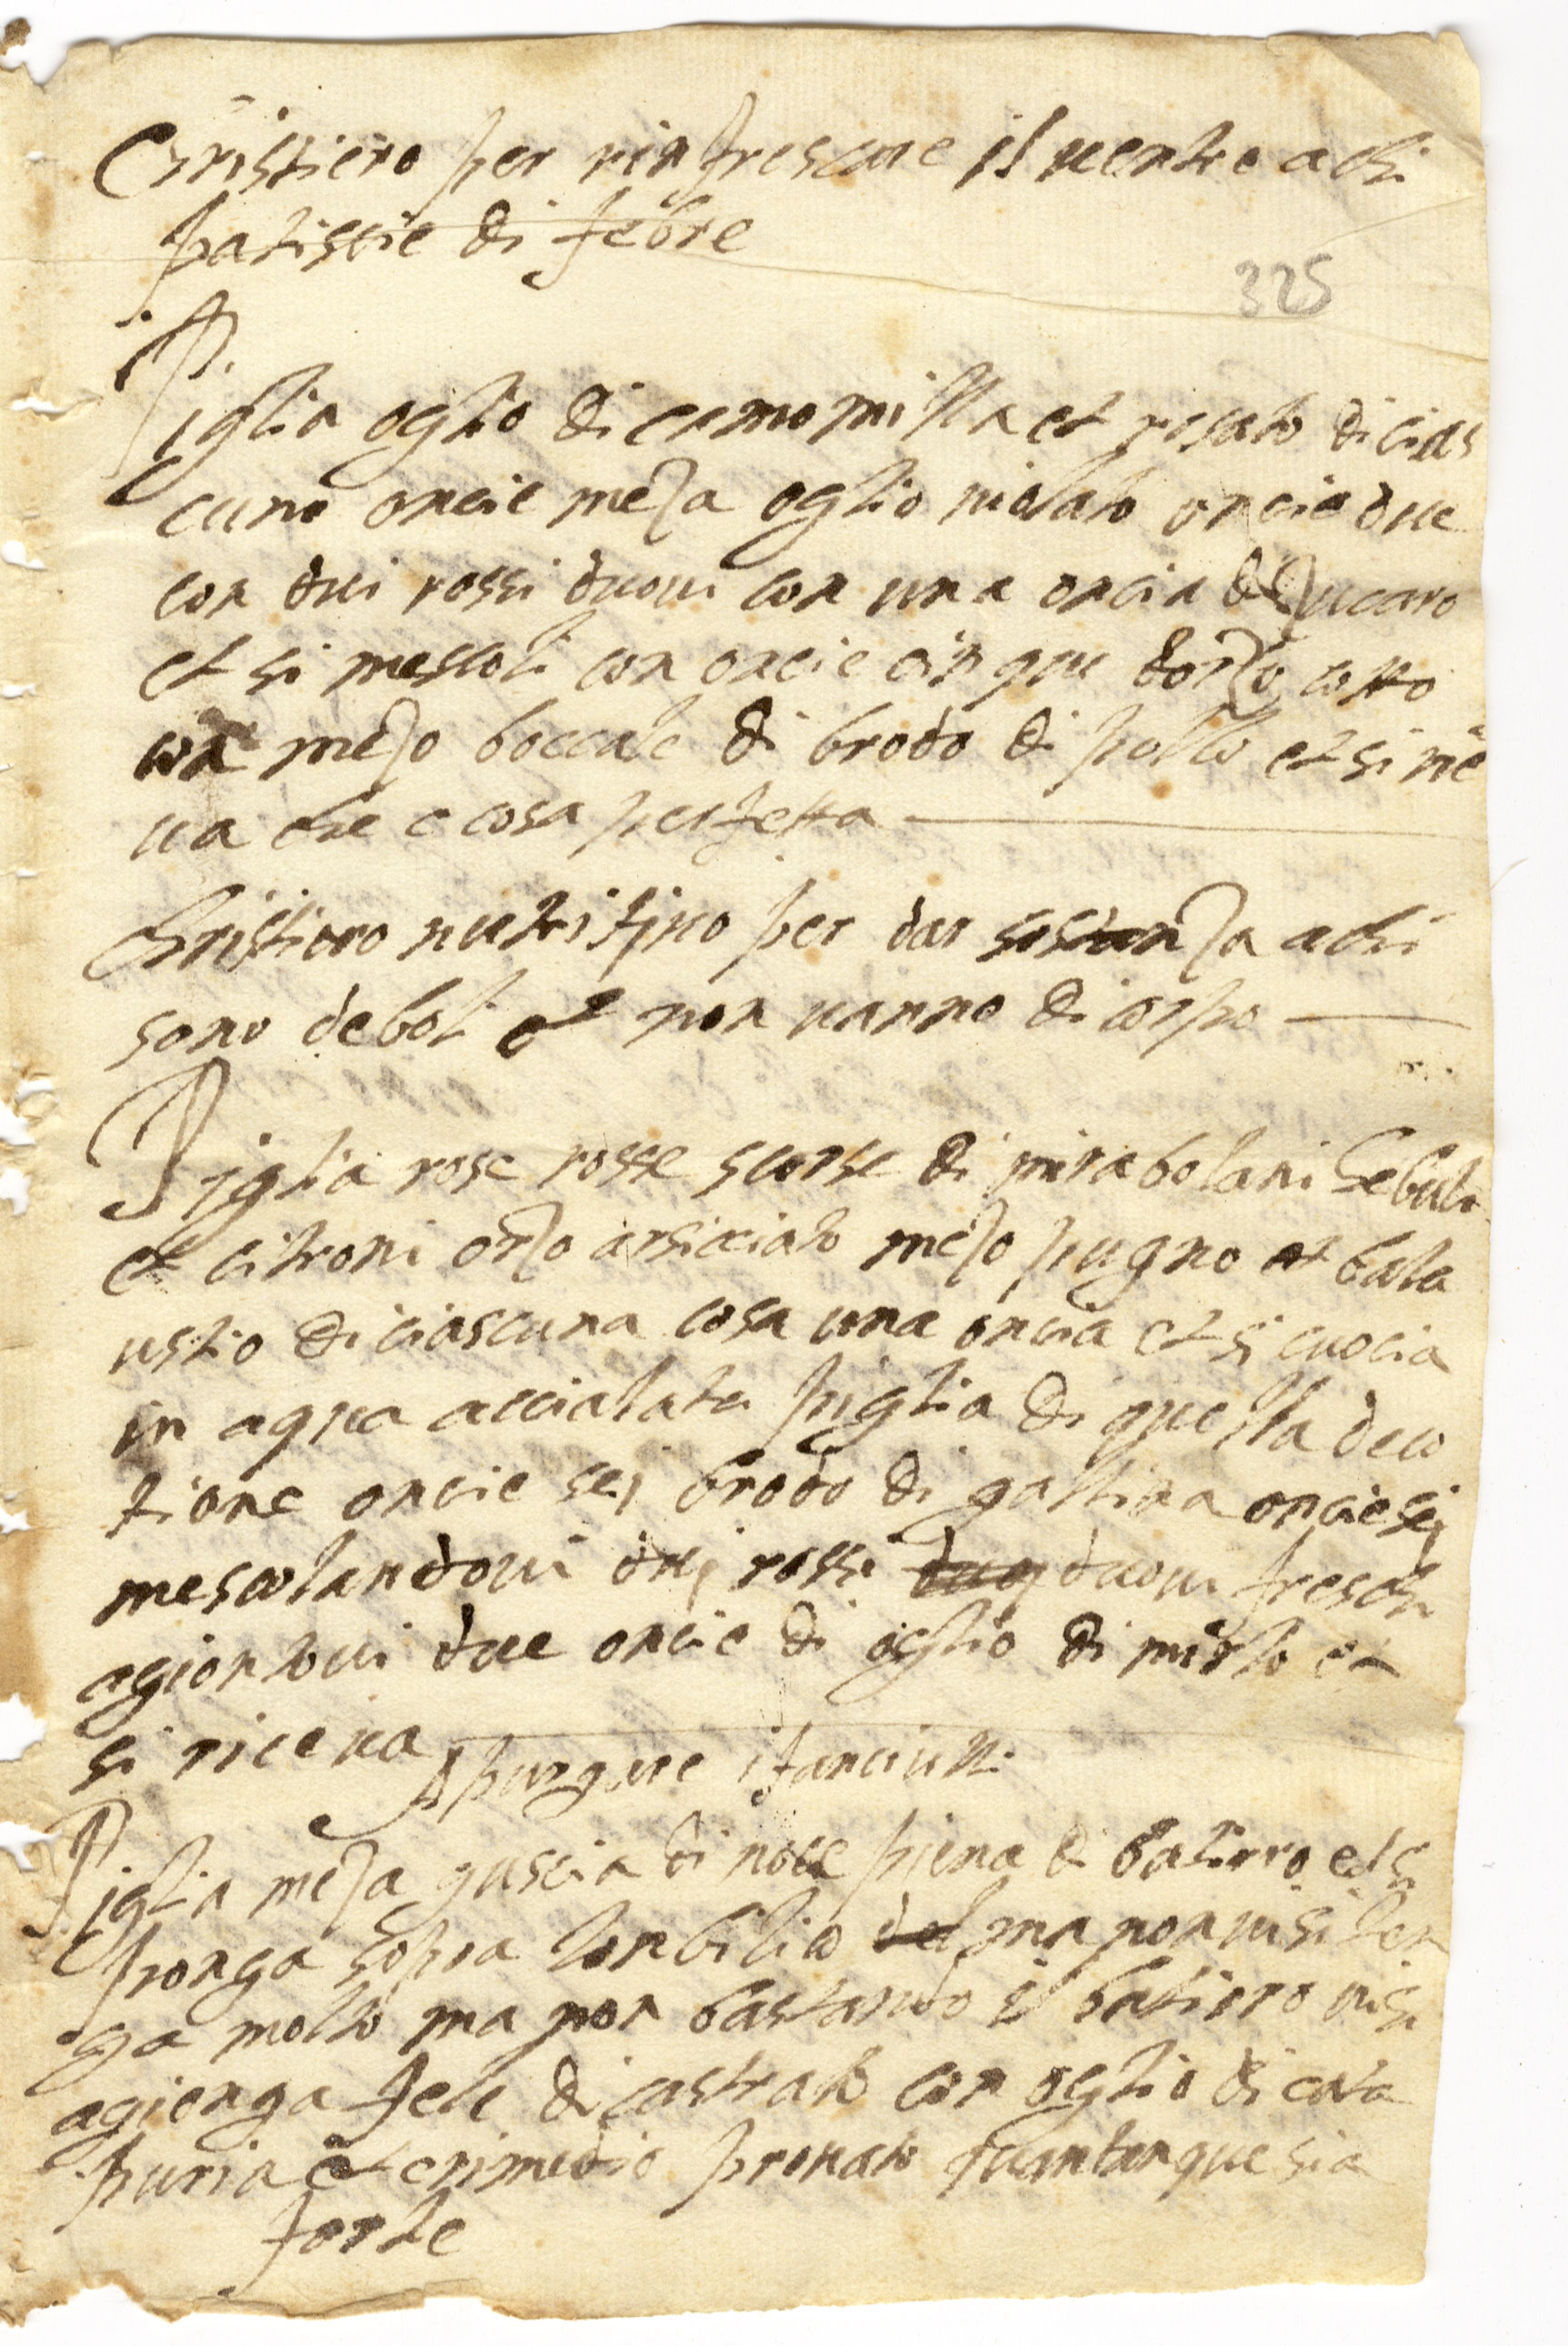 Christiero per rinfrescare il uentre a chi
patiscie di febre
325
Piglia oglio di camomilla et rosato di cias
cuno oncie meza oglio uiolato oncie due
con dui rossi duoui con una oncia di zucaro
et si mescoli con oncie cinque dorzo cotto
con mezo boccale di brodo di pollo et si rice
ua che e cosa perfetta
Christiero nutritiuo per dar sostanza a chi
sono deboli et non uanno di corpo
Piglia rose rosse scorse di mirabolani Chebuli
et citroni orzo arsicciato mezo pugno et bala
ustio di ciascuna cosa una oncia et si cuocia
in aqua accialata piglia di quella deco
tione oncie sei brodo di gallina oncie sei
mescolandoui dui rossi duoui freschi
agiontoui due oncie di oglio di mirto et
si riceua
A purgare i fanciulli
Piglia meza guscia di noce piena di batirro et si
ponga sopra lonbilico del ma non ui si ten
ga molto ma non bastando il batirro ui si
agienga fele di castrato con oglio di cata
puria et e rimedio prouato quantunque sia
forte